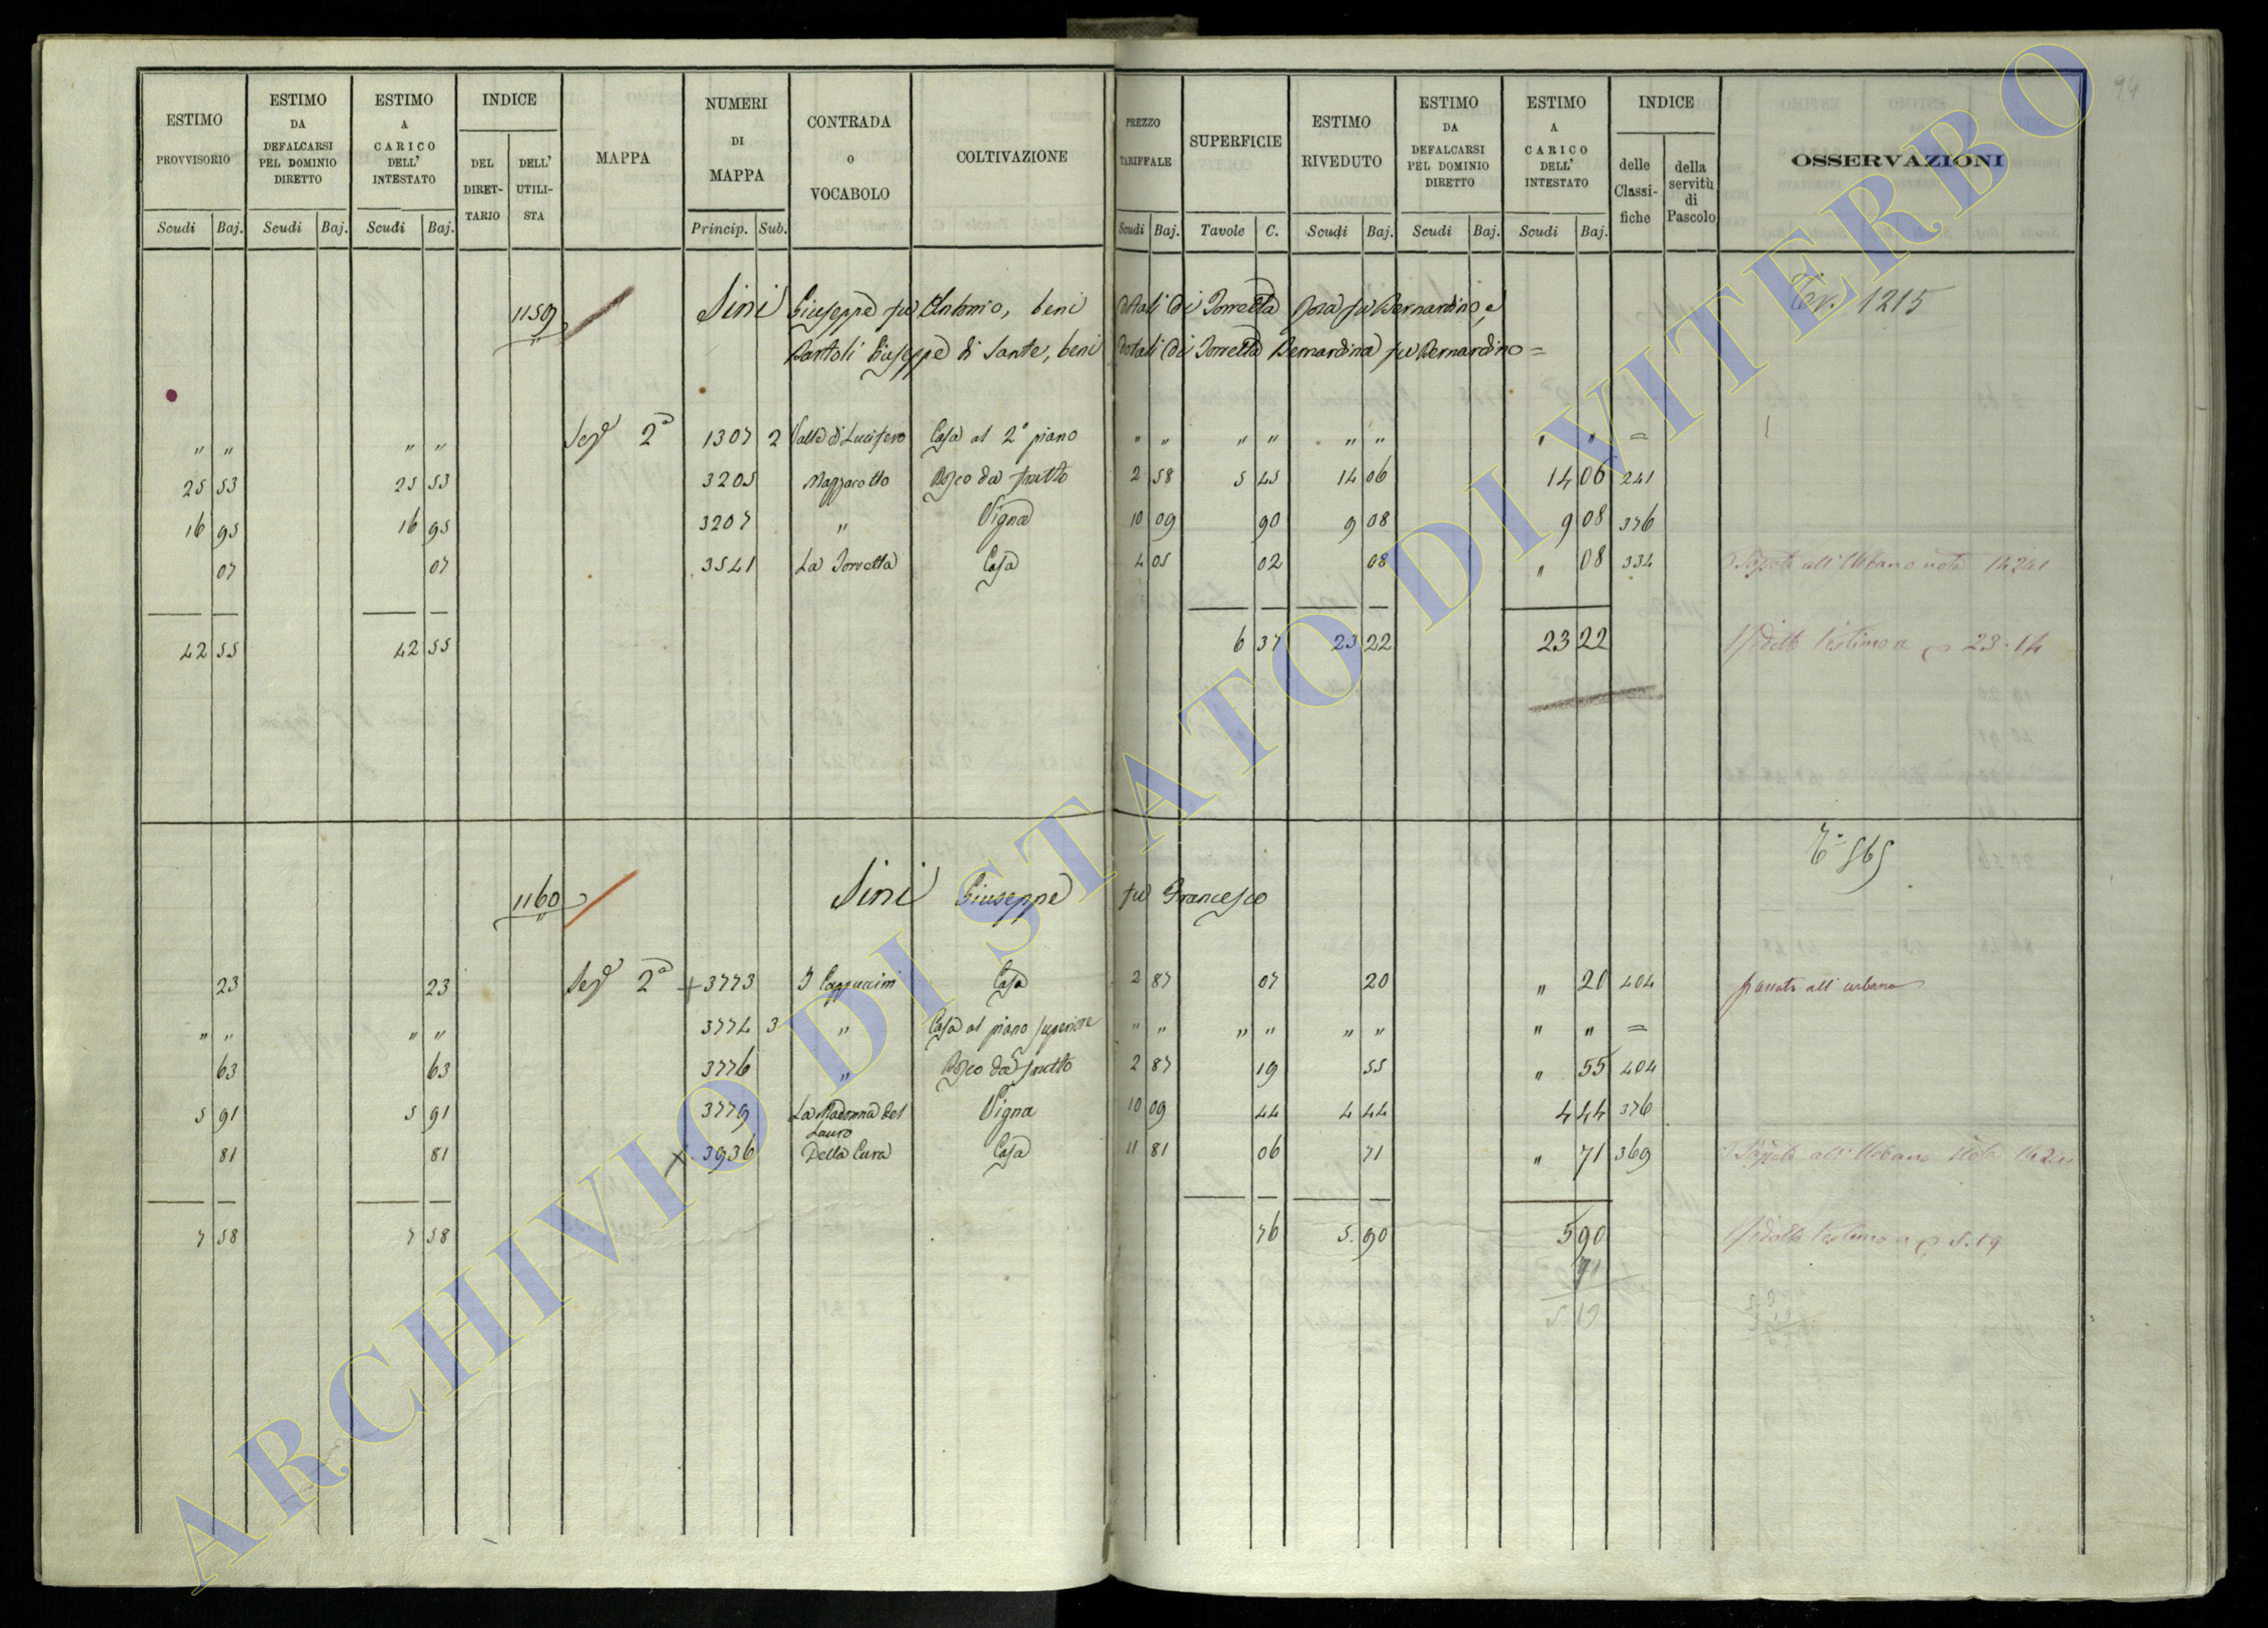 94
ESTIMO PROVVISORIO | ESTIMO DA DEFALCARSI PEL DOMINIO DIRETTO | ESTIMO A CARICO DELL' INTESTATO | INDICE | MAPPA | NUMERI DI MAPPA | CONTRADA o VOCABOLO | COLTIVAZIONE | PREZZO TARIFFALE | SUPERFICIE | ESTIMO RIVEDUTO | ESTIMO DA DEFALCARSI PEL DOMINIO DIRETTO | ESTIMO A CARICO DELL' INTESTATO | INDICE | OSSERVAZIONI
DEL DIRET-TARIO | DELL' UTILI-STA | delle Classi-fiche | della servitù di Pascolo
Scudi | Baj. | Scudi | Baj. | Scudi | Baj. | Princip. | Sub. | Scudi | Baj. | Tavole | C. | Scudi | Baj. | Scudi | Baj. | Scudi | Baj.
1159 Sini Giuseppe fu Antonio, beni dotali di Torretta Rosa fu Bernardino, e 1215
Bartoli Giuseppe di Sante, beni dotali di Torretta Bernardina fu Bernardino =
" " " " Sez. 2ª 1307 2 Valle di Lucifero Casa al 2° piano " " " " " " " " =
25 53 25 53 3205 Mazzacotto Bosco da frutto 2 58 5 45 14 06 14 06 241
16 95 16 95 3207 " Vigna 10 09 90 9 08 9 08 376
07 07 3541 La Torretta Casa 4 05 02 08 " 08 334 all'Urbano nota
42 55 42 55 6 37 23 22 23 22 l'estimo a 23.14
1160 Sini Giuseppe fu Francesco 565
23 23 Sez. 2ª + 3773 I Cappuccini Casa 2 87 07 20 " 20 404 passato all'urbano
" " " " 3774 3 " Casa al piano superiore " " " " " " " " =
63 63 3776 " Bosco da frutto 2 87 19 55 " 55 404
5 91 5 91 3779 La Madonna del Lauro Vigna 10 09 44 4 44 4 44 376
81 81 + 3936 Della Cura Casa 11 81 06 71 " 71 369 all'Urbano Nota
7 58 7 58 76 5. 90 5 90 l'estimo a 5.19
71
5 19
ARCHIVIO DI STATO DI VITERBO